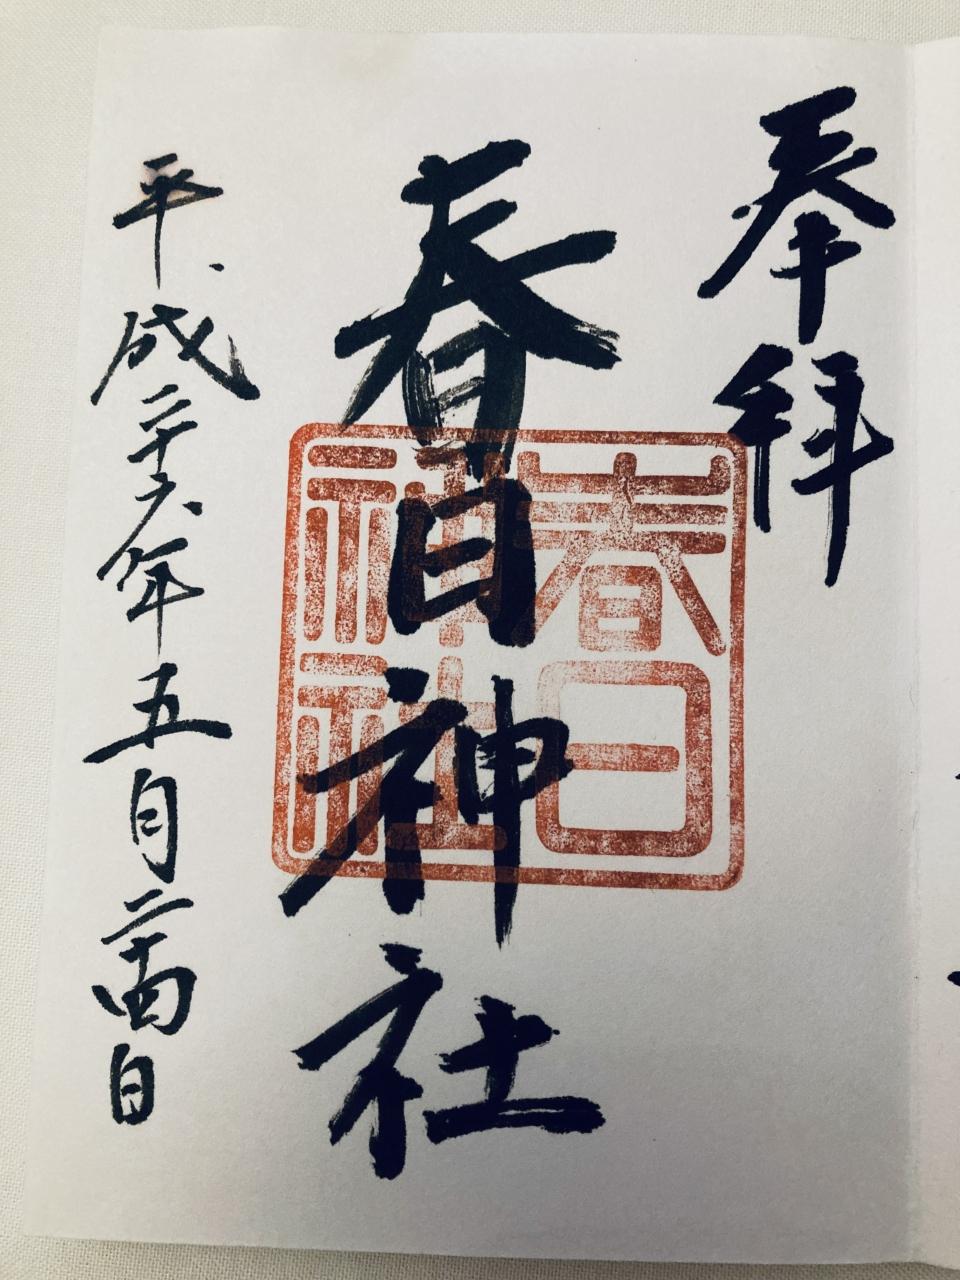 奉拝
春日神社
春日神社
平成二十六年五月二十四日